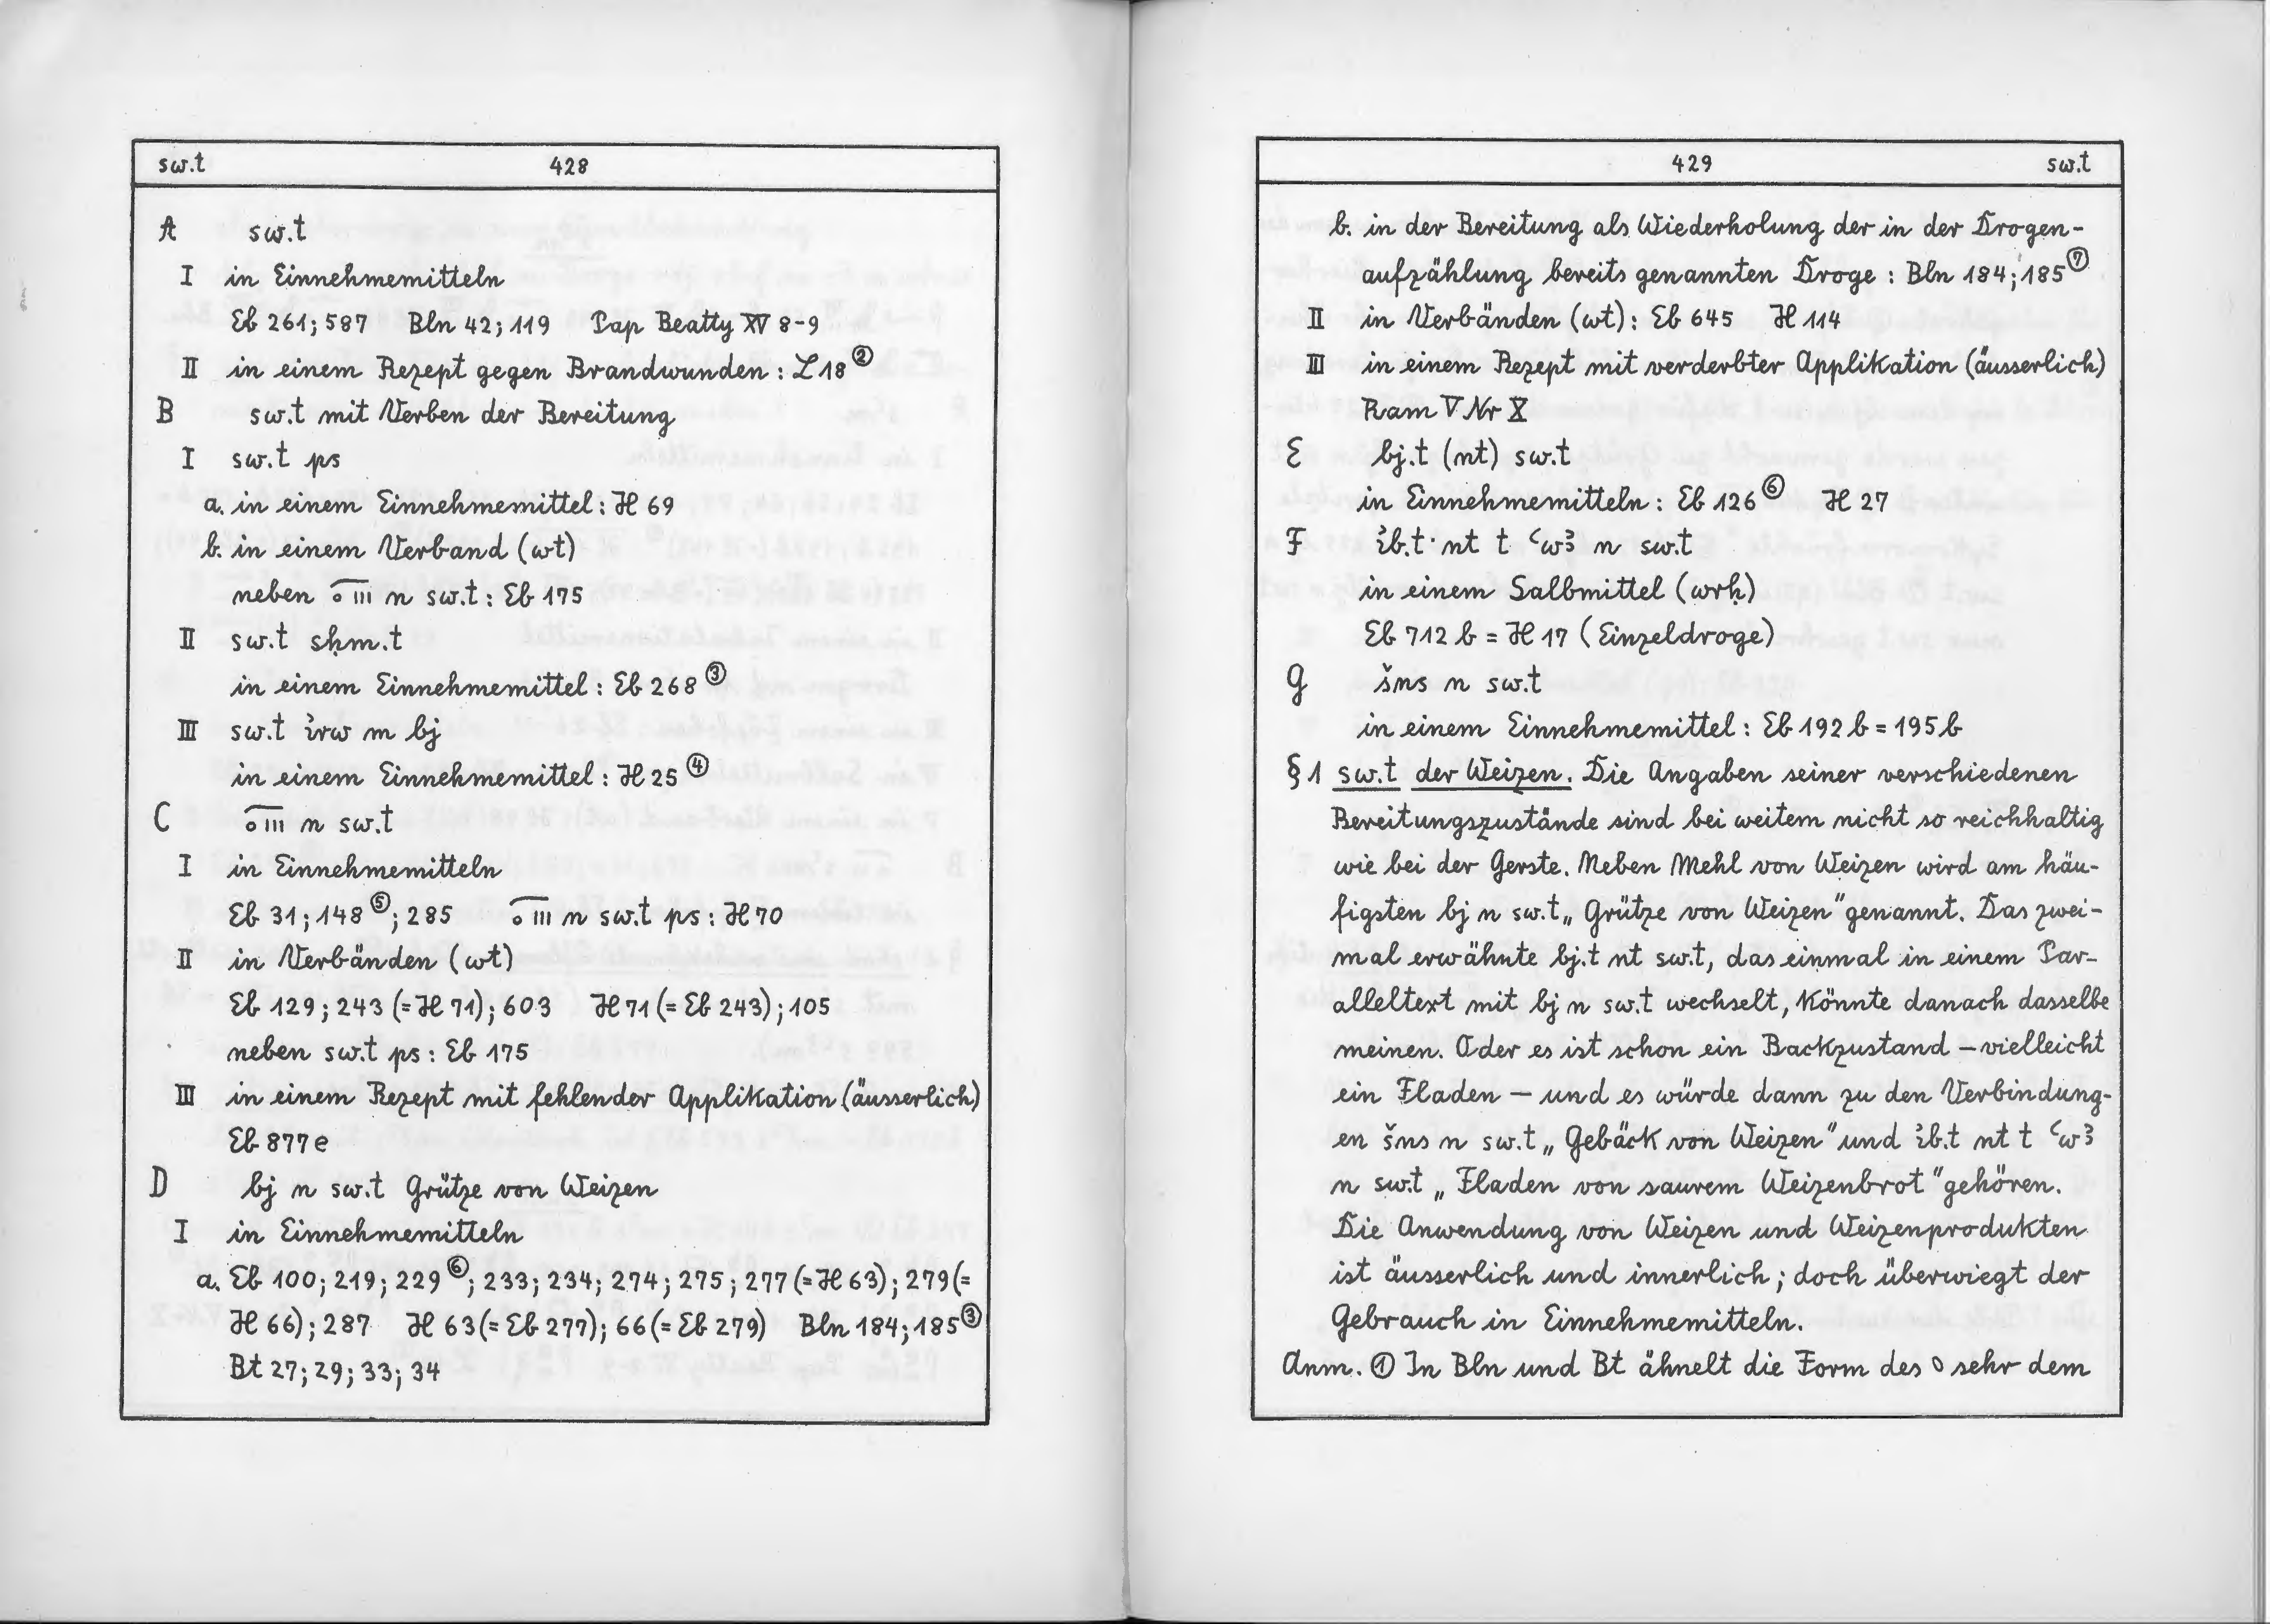 sw.t 428
A sw.t
I in Einnehmemitteln
Eb 261; 587 Bln 42; 119 Pap Beatty XV 8-9
II in einem Rezept gegen Brandwunden: L 18 ②
B sw.t mit Verben der Bereitung
I sw.t ps
a. in einem Einnehmemittel: H 69
b. in einem Verband (wt)
neben n sw.t: Eb 175
II sw.t sḥm.t
in einem Einnehmemittel: Eb 268 ③
III sw.t ỉrw m bj
in einem Einnehmemittel: H 25 ④
C n sw.t
I in Einnehmemitteln
Eb 31; 148 ⑤; 285 n sw.t ps: H 70
II in Verbänden (wt)
Eb 129; 243 (= H 71); 603 H 71 (= Eb 243); 105
neben sw.t ps: Eb 175
III in einem Rezept mit fehlender Applikation (äusserlich)
Eb 877e
D bj n sw.t Grütze von Weizen
I in Einnehmemitteln
a. Eb 100; 219; 229 ⑥; 233; 234; 274; 275; 277 (= H 63); 279 (=
H 66); 287 H 63 (= Eb 277); 66 (= Eb 279) Bln 184; 185 ③
Bt 27; 29; 33; 34
429 sw.t
b. in der Bereitung als Wiederholung der in der Drogen-
aufzählung bereits genannten Droge: Bln 184; 185 ⑦
II in Verbänden (wt): Eb 645 H 114
III in einem Rezept mit verderbter Applikation (äusserlich)
Ram V Nr X
E bj.t (nt) sw.t
in Einnehmemitteln: Eb 126 ⑥ H 27
F ỉb.t nt t ꜥwꜣ n sw.t
in einem Salbmittel (wrḥ)
Eb 712 b = H 17 (Einzeldroge)
G šns n sw.t
in einem Einnehmemittel: Eb 192 b = 195 b
§ 1 sw.t der Weizen. Die Angaben seiner verschiedenen
Bereitungszustände sind bei weitem nicht so reichhaltig
wie bei der Gerste. Neben Mehl von Weizen wird am häu-
figsten bj n sw.t „Grütze von Weizen" genannt. Das zwei-
mal erwähnte bj.t nt sw.t, das einmal in einem Par-
alleltext mit bj n sw.t wechselt, könnte danach dasselbe
meinen. Oder es ist schon ein Backzustand – vielleicht
ein Fladen – und es würde dann zu den Verbindung-
en šns n sw.t „Gebäck von Weizen" und ỉb.t nt t ꜥwꜣ
n sw.t „Fladen von saurem Weizenbrot" gehören.
Die Anwendung von Weizen und Weizenprodukten
ist äusserlich und innerlich; doch überwiegt der
Gebrauch in Einnehmemitteln.
Anm. ① In Bln und Bt ähnelt die Form des sehr dem